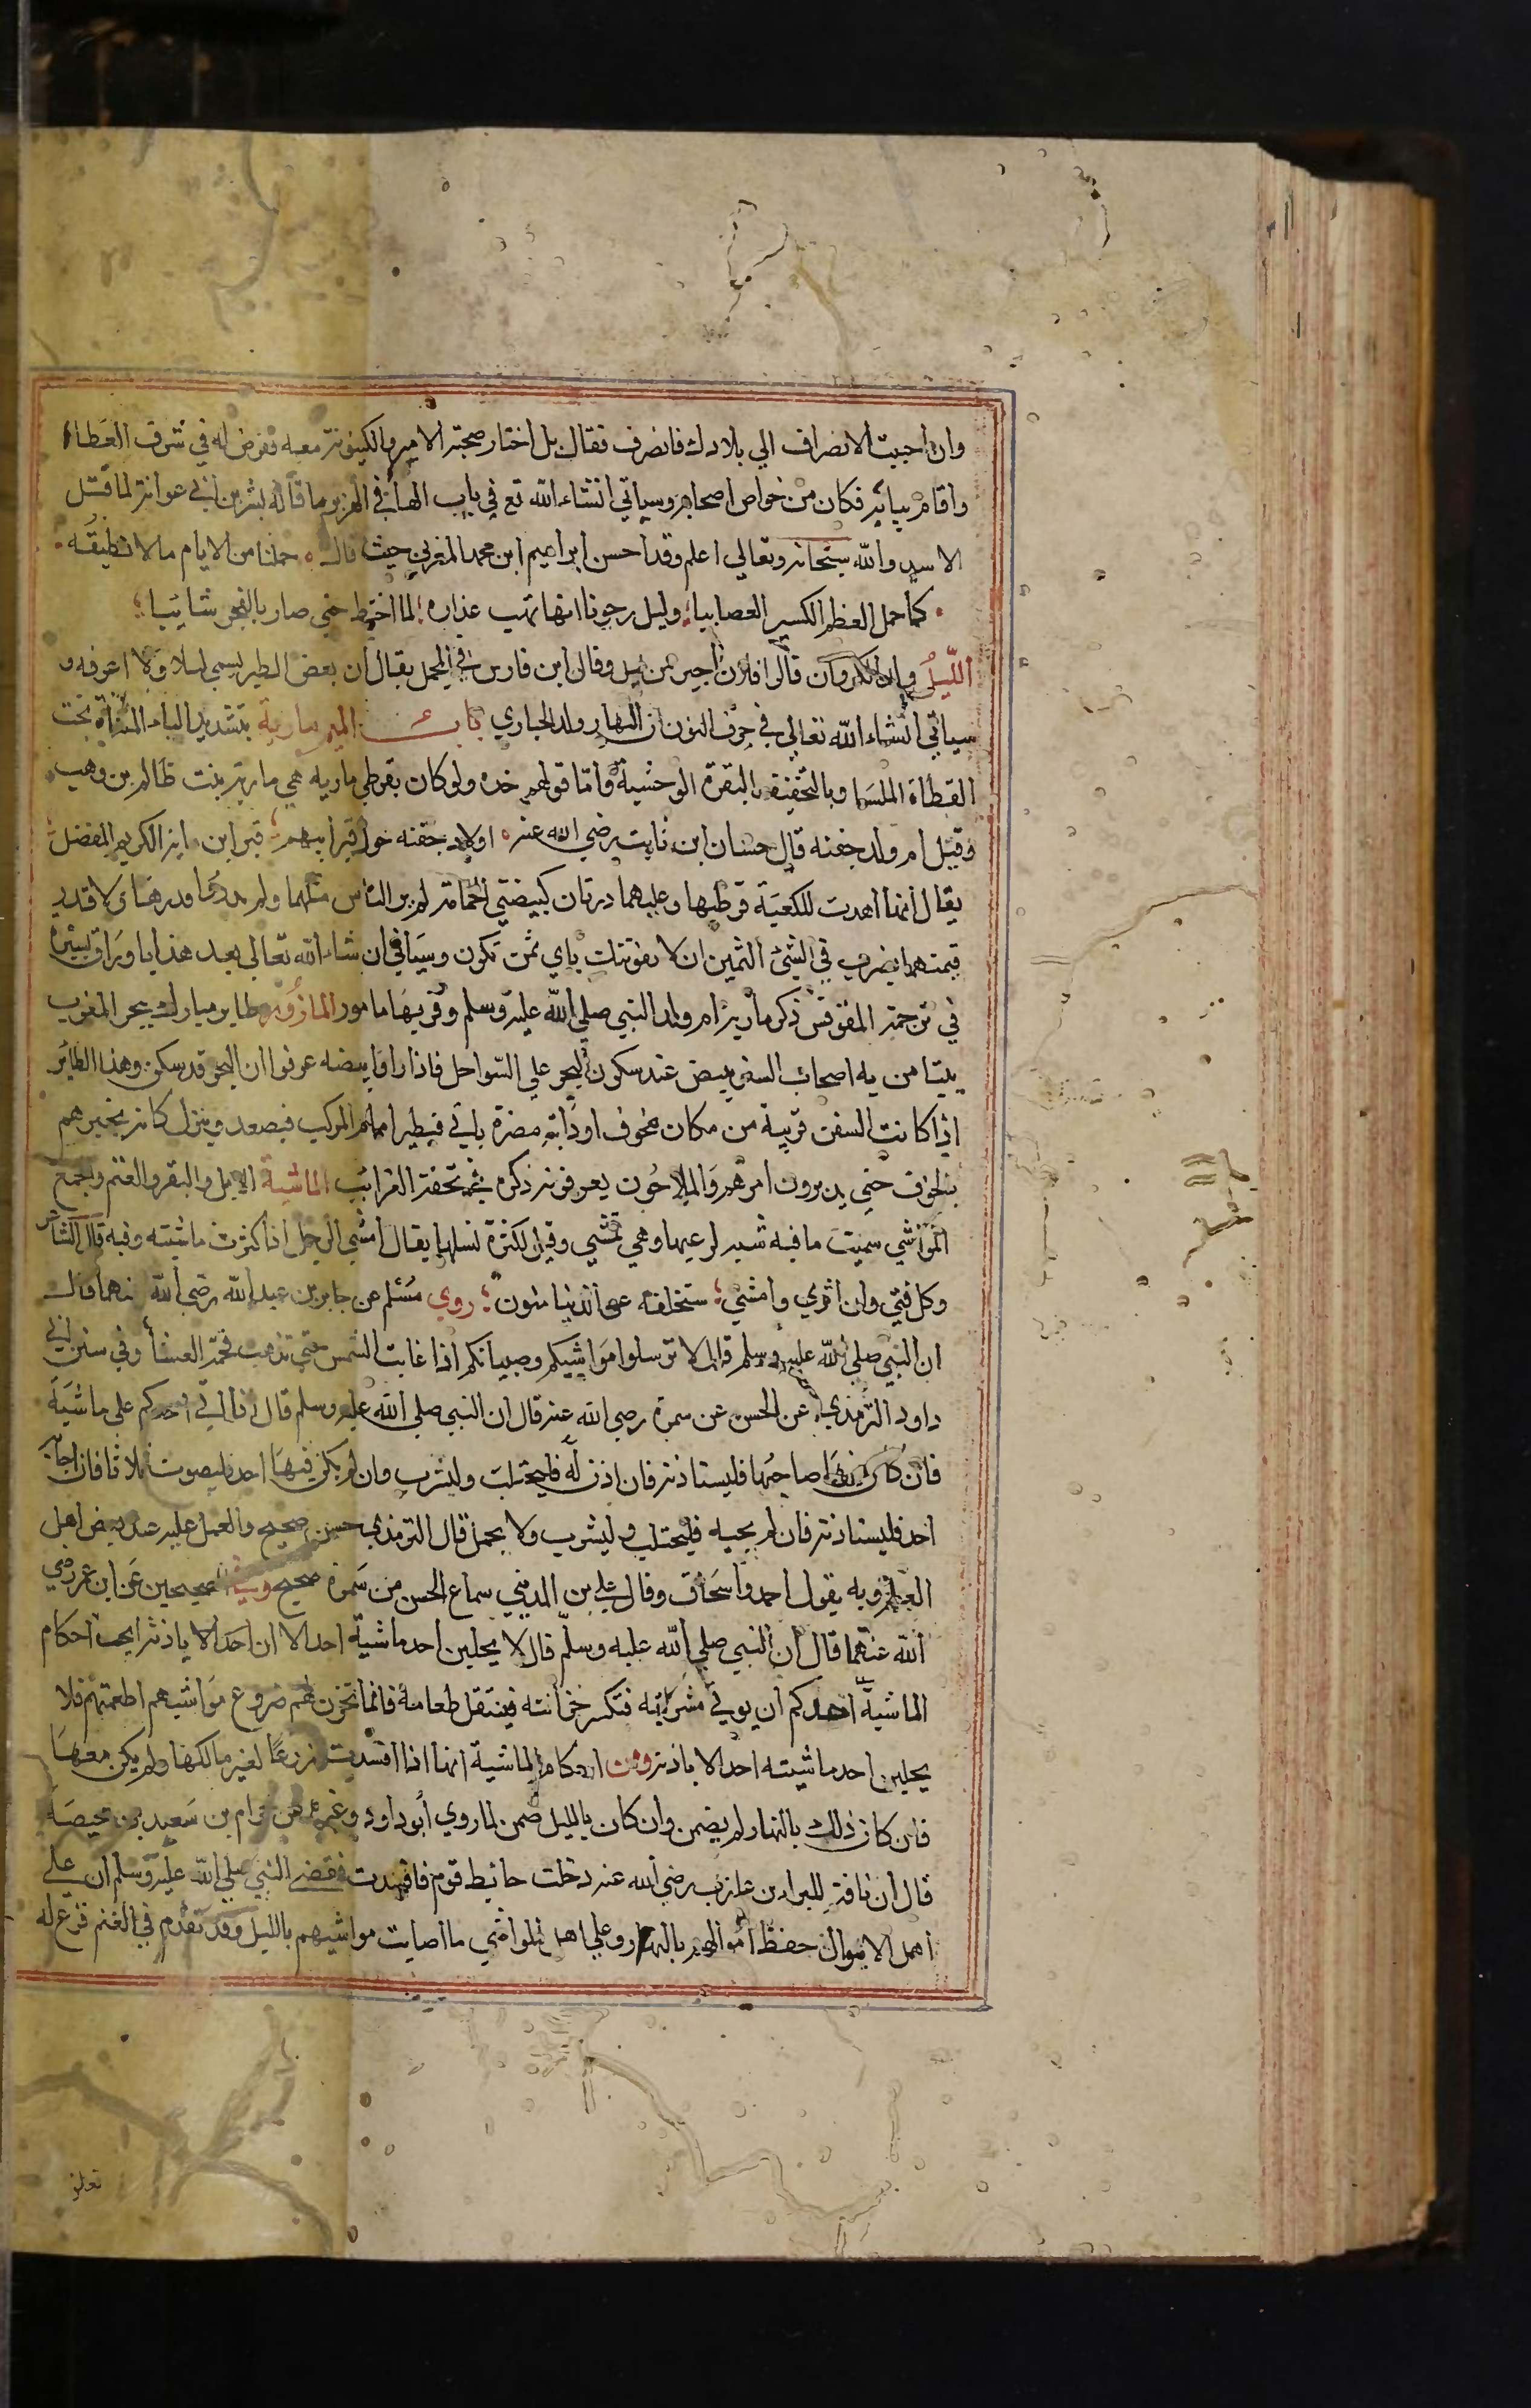 وان احببت الانصراف الي بلادك فانصرف فقال بل اختار صحبة الامير والكينونة معه ففرض له في شرف العطاء
واقام ببابه فكان من خواص اصحابه وسياتي انشاء الله تع في باب الهاء في الهزبر ما قاله بشر بن ابي عوانة لما قتل
الاسد والله سبحانه وتعالي اعلم وقد احسن ابراهيم ابن محمد المغربي حيث قال حملنا من الايام ما لا نطيقه
كما حمل العظم الكسير العصايبا وليل رجونا ان يدب عذاره لما اختط حتي صار بالفجر شايبا
الليل ولد الكروان قالوا فلان اجبن من ليل وقال ابن فارس في المجمل يقال ان بعض الطير يسمي ليلا ولا اعرفه و
سياتي انشاء الله تعالي في حرف النون ان النهار ولد الحباري باب الميم مارية بتشديد الياء المثناة تحت
القطاة الملسا وبالتخفيف البقرة الوحشية واما قولهم خذه ولو كان بقرطي ماريه هي مارية بنت ظالم بن وهب
وقيل ام ولد جفنه قال حسان ابن ثابت رضي الله عنه اولاد جفنه حول قبر ابيهم قبر ابن مارية الكريم المفضل
يقال انها اهدت للكعبة قرطيها وعليهما درتان كبيضتي الحمامة لم ير الناس مثلهما ولم يدر ما قدرهما ولا قدر
قيمتهما يضرب في الشئ الثمين ان لا يفوتنك باي ثمن تكون وسياتي ان شاء الله تعالي بعد هذا باوراق يسيرة
في ترجمة المقوقس ذكر مارية ام ولد النبي صلي الله عليه وسلم وقريبها مامور المازور طاير مبارك ببحر المغرب
يتيامن به اصحاب السفن يبيض عند سكون البحر علي السواحل فاذا راوا بيضه عرفوا ان البحر قد سكن وهذا الطاير
اذا كانت السفن قريبة من مكان مخوف او دابة مضرة ياتي فيطير امام المركب فيصعد وينزل كانه يخبرهم
بالخوف حتي يدبرون امرهم والملاحون يعرفونه ذكره في تحفة الغرائب الماشية الابل والبقر والغنم والجمع
المواشي سميت ماشية لرعيها وهي تمشي وقيل لكثرة نسلها يقال امشي الرجل اذا كثرت ماشيته وفيه قال الشاعر
وكل فتي وان اثري وامشي ستخلفه عن الدنيا منون روي مسلم عن جابر بن عبد الله رضي الله عنهما قال
ان النبي صلي الله عليه وسلم قال لا ترسلوا مواشيكم وصبيانكم اذا غابت الشمس حتي تذهب فحمة العشا وفي سنن ابي
داود الترمذي عن الحسن عن سمرة رضي الله عنه قال ان النبي صلي الله عليه وسلم قال اذا اتي احدكم علي ماشية
فان كان فيها صاحبها فليستاذنه فان اذن له فليحتلب وليشرب وان لم يكن فيها احد فليصوت ثلاثا فان اجابه
احد فليستاذنه فان لم يجبه فليحتلب وليشرب ولا يحمل قال الترمذي حسن صحيح والعمل عليه عند بعض اهل
العلم وبه يقول احمد واسحاق وقال علي بن المديني سماع الحسن من سمرة صحيح وفي الصحيحين عن ابن عمر رضي
الله عنهما قال ان النبي صلي الله عليه وسلم قال لا يحلبن احد ماشية احد الا ان احدا الا ياذنه ايحب احكام
الماشية احدكم ان يوتي مشربته فتكسر خزانته فينتقل طعامه فانما تخزن لهم ضروع مواشيهم اطعمتهم فلا
يحلبن احد ماشيته احد الا باذنه ومن احكام الماشية انها اذا افسدت زرعا لغير مالكها ولم يكن معها
فان كان ذلك بالنهار لم يضمن وان كان بالليل ضمن لما روي ابو داود وغيره عن حرام بن سعيد بن محيصة
قال ان ناقة للبراء بن عازب رضي الله عنه دخلت حائط قوم فافسدت فقضي النبي صلي الله عليه وسلم ان علي
اهل الاموال حفظ اموالهم بالنهار وعلي اهل المواشي ما اصابت مواشيهم بالليل وقد تقدم في الغنم فرع له